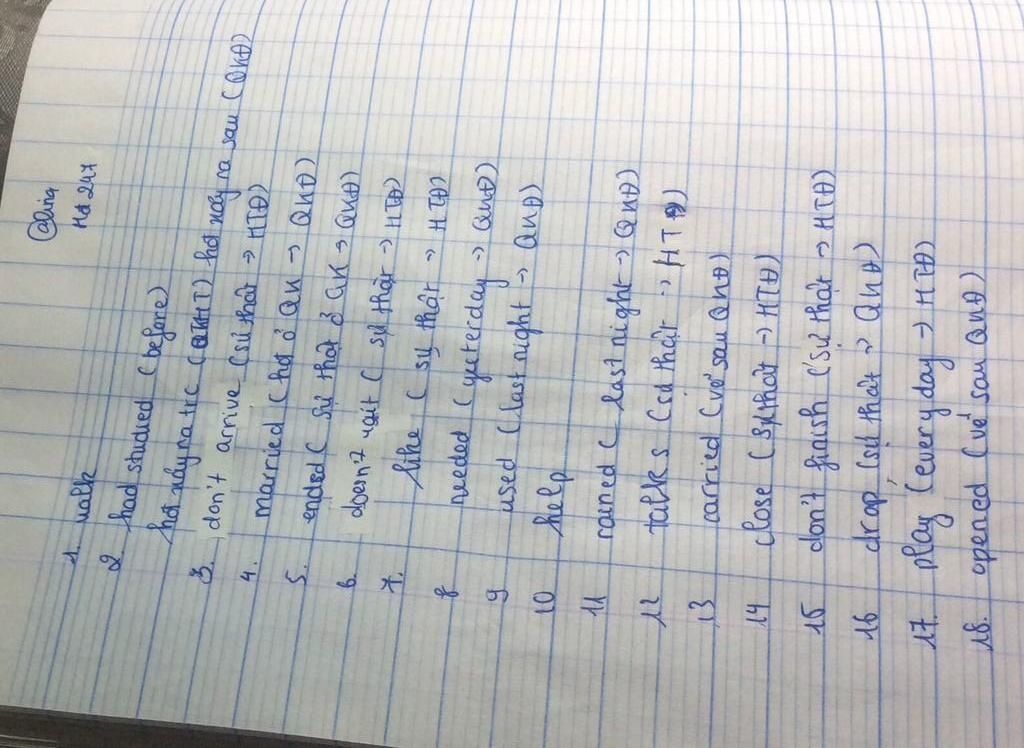 @lina
Hđ 247
1. walk
2 had studied (before)
hđ xảy ra trc (QKHT) - hđ xảy ra sau (QKĐ)
3. don't arrive (sự thật → HTĐ)
4. married (hđ ở QK → QKĐ)
5. ended (sự thật ở QK → QKĐ)
6 doen't wait (sự thật → HTĐ)
7. like (sự thật → HTĐ)
8 needed (yeterday → QKĐ)
9 used (last night → QKĐ)
10 help
11 rained (last night → QKĐ)
12 talks (sự thật → HTĐ)
13 carried (vế sau QKĐ)
14 close (sự thật → HTĐ)
15 don't finish (sự thật → HTĐ)
16 drop (sự thật → QKĐ)
17. play (every day → HTĐ)
18. opened (vế sau QKĐ)